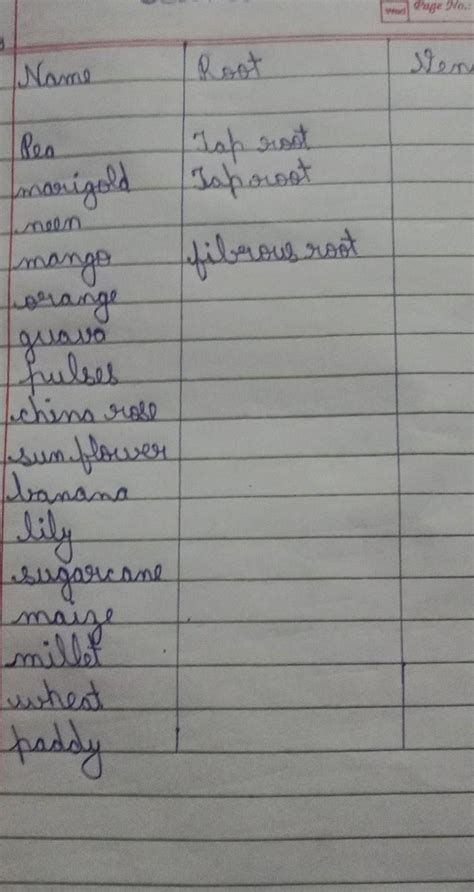 Page No.:
Name Root Stem
Pea Tap root
marigold Tap root
neem
mango fibrous root
orange
guava
pulses
china rose
sunflower
banana
lily
sugarcane
maize
millet
wheat
paddy